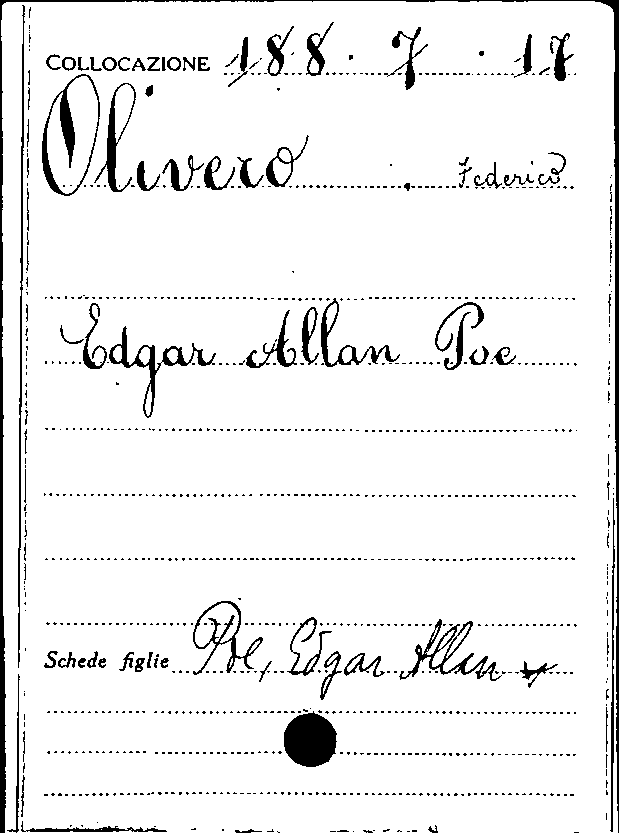 COLLOCAZIONE 188 · 7 · 17
Olivero . Federico
Edgar Allan Poe
Schede figlie Poe, Edgar Allan